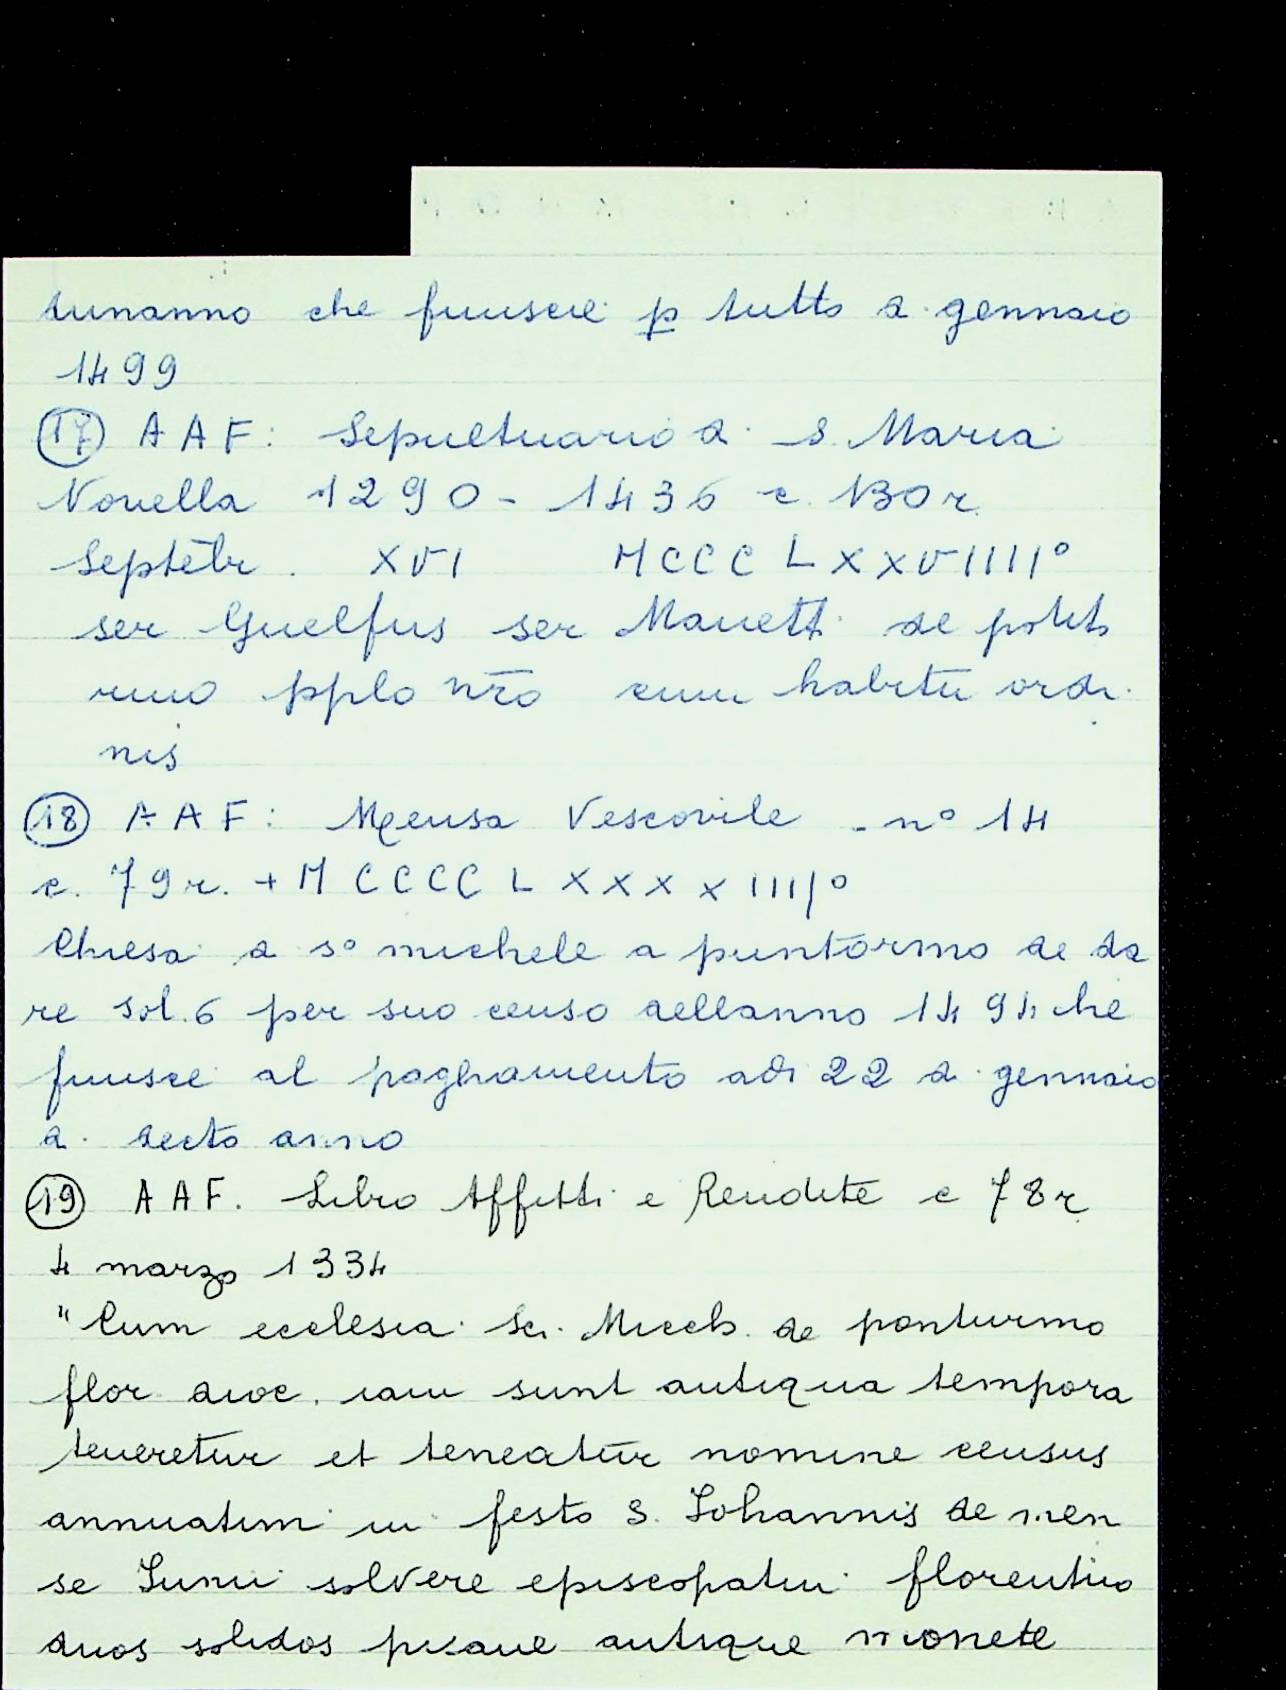 dunanno che finisce p tutto di gennaio
1499
17 AAF: Sepultuario di S. Maria
Novella 1290 - 1436 c. 130r.
Septēbr. XVI MCCCLXXVIIII°
ser Guelfus ser Manetti de polito
rmo pplo nro cum habitū ordi
nis
18 AAF: Mensa Vescovile - n° 14
c. 79r. + MCCCCLXXXXIIII°
Chiesa di S° michele a puntormo de da
re sol. 6 per suo censo dellanno 1494 che
finisce al paghamento adi 22 di gennaio
di decto anno
19 AAF. Libro Affitti e Rendite c 78r
4 marzo 1334
"Cum ecclesia Sci. Micch. de ponturmo
flor dioc. iam sunt antiqua tempora
teneretur et teneatūr nomine census
annuatim in festo S. Iohannis de men
se Iunii solvere episcopatui florentino
duos solidos pisane antique monete